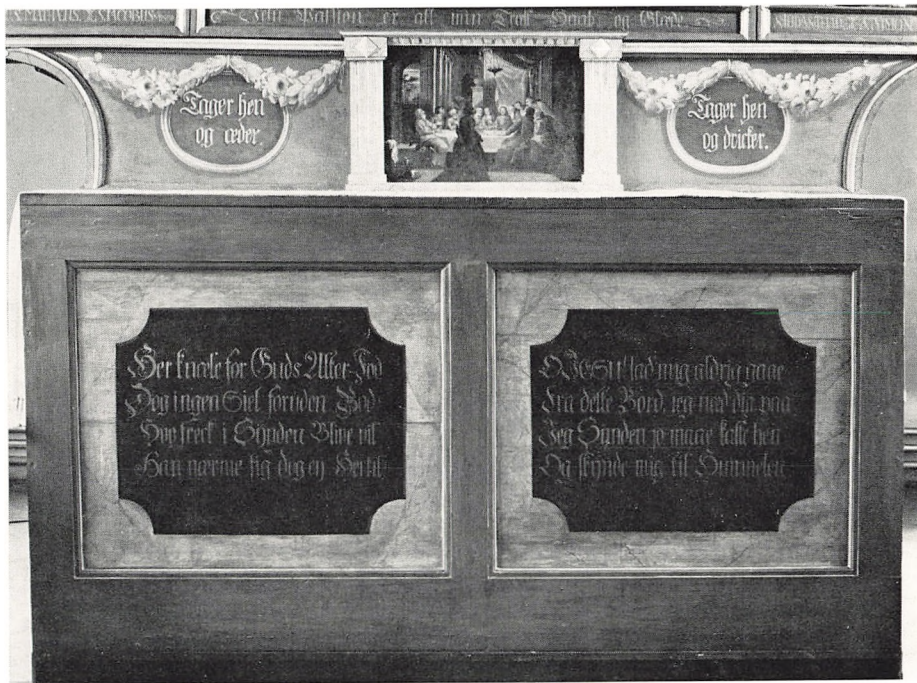 Dein Passion er all min Trost Haab og Glæde
Tager hen
og æder.
Tager hen
og dricker.
Her knæle for Guds Alter-Fod
Dog ingen Siel foruden Bod
Hvo freck i Synden Blive vil
Han nærme sig dog ey Hertil
O JESu! lad mig aldrig gaae
Fra dette Bord, jeg ned dig paa
Jeg Synden jo maae kaste hen
Og skynde mig til Himmelen